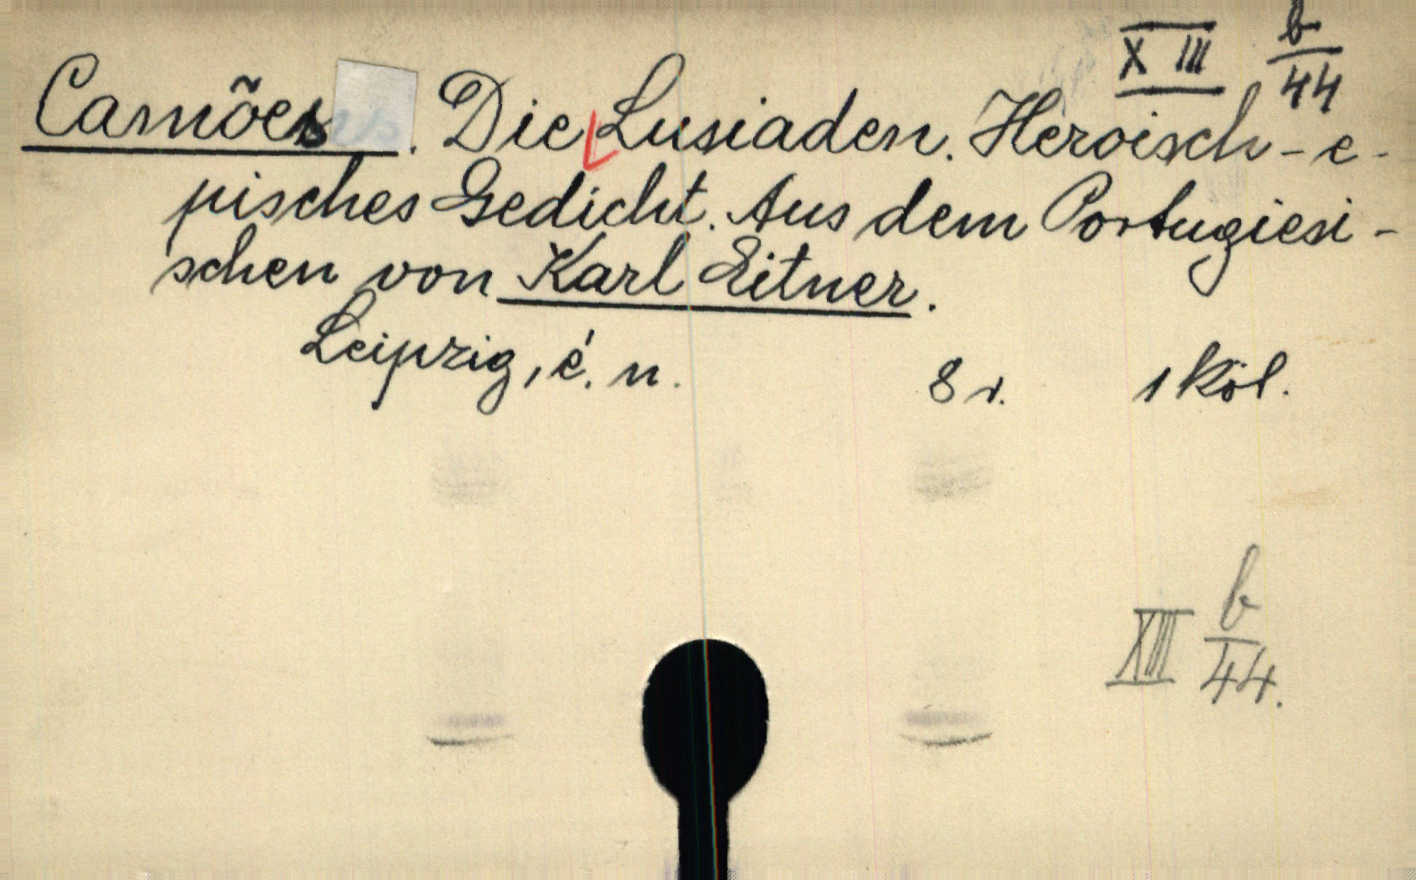 XIII b/44
Camões. Die Lusiaden. Heroisch-e-
pisches Gedicht. Aus dem Portugiesi-
schen von Karl Eitner.
Leipzig, é. n. 8 r. 1 köt.
XIII b/44.